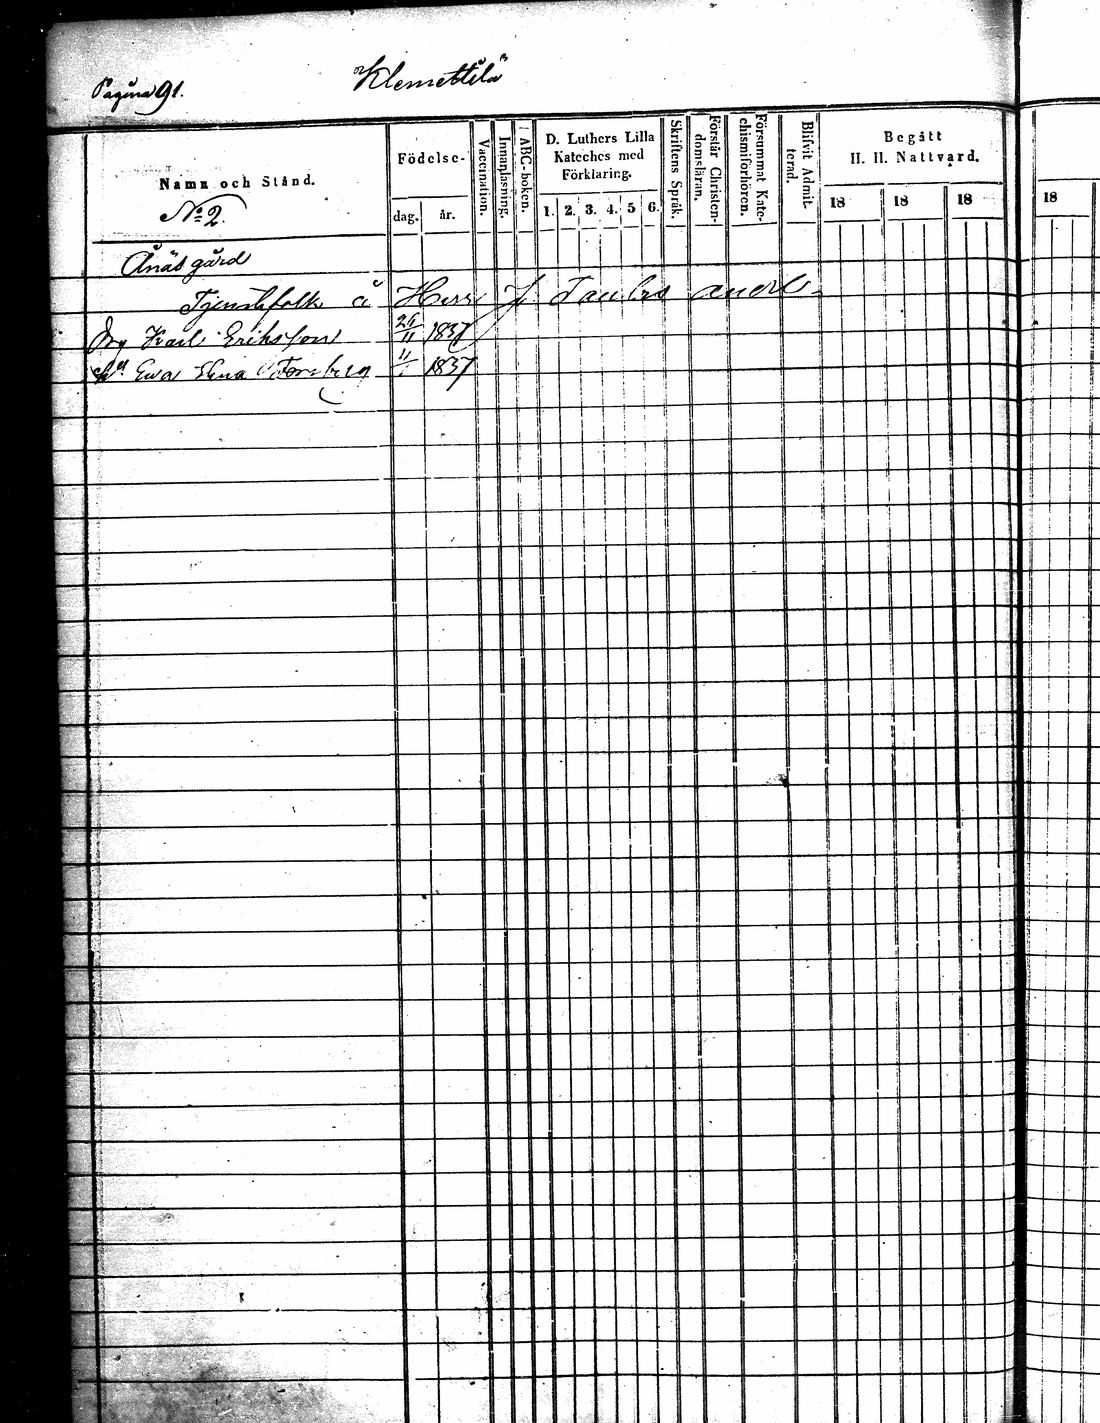 Pagina 91.
Klemettilä
Namn och Stånd.
No 2.
Födelse-
dag. år.
Vaccination.
Innanläsning.
ABC-boken.
D. Luthers Lilla
Kateches med
Förklaring.
1. 2. 3. 4. 5 6.
Skriftens Språk.
Förstår Christen-
domsläran.
Försummat Kate-
chismiförhören.
Blifvit Admit-
terad.
Begått
H. H. Nattvard.
18 18 18
18
Ånäs gård
Tjenstefolk å Herr J
Drg Karl Eriksson 26/11 1837
Ewa Lena Forsberg 11/ 1837